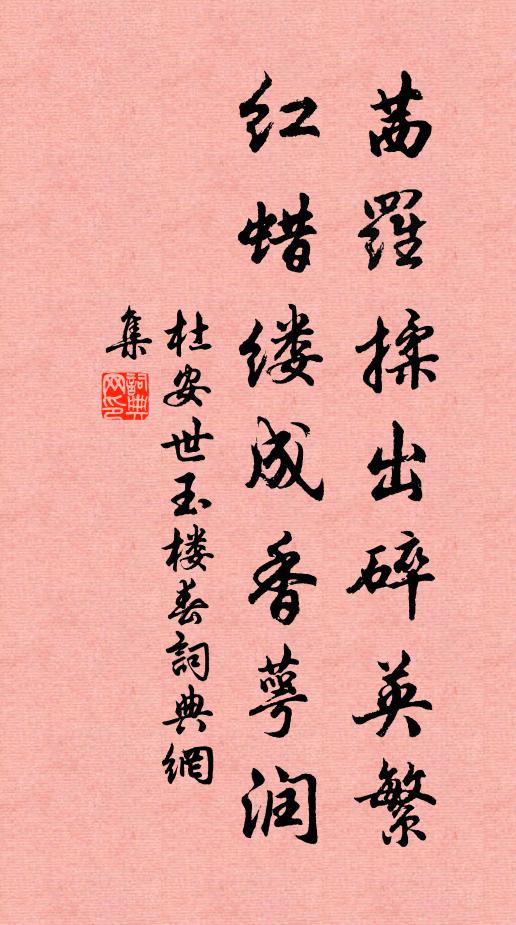 茜羅揉出碎英繁
红蜡缕成香萼润
杜安世玉楼春詞典網
集
詞典网印